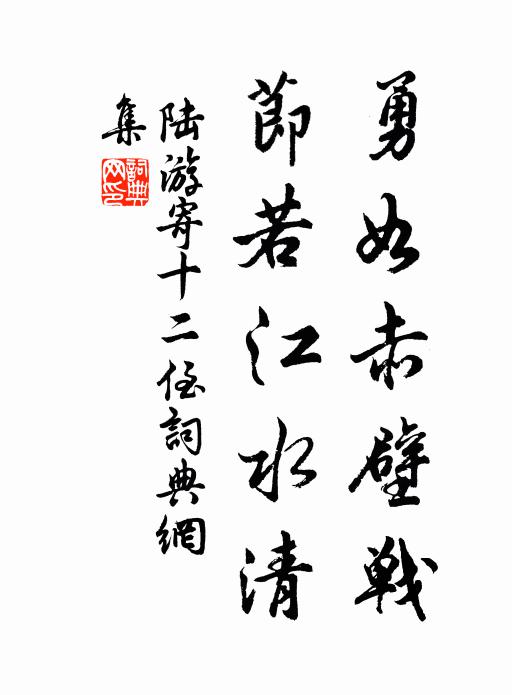 勇如赤壁戦
節若江水清
陆游寄十二侄詞典網
集
詞典网印